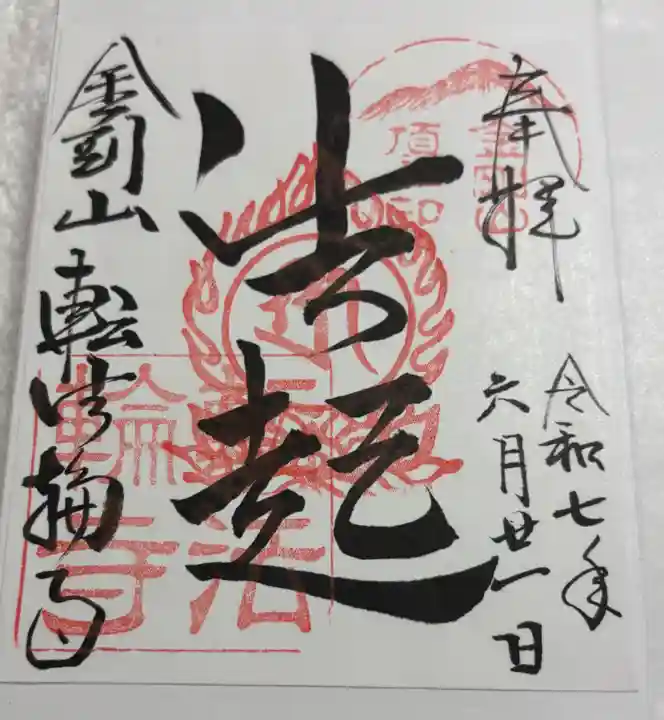 奉拝
令和七年
六月廿一日
法起
金剛山転法輪寺
金剛山
頂上印
転法輪寺